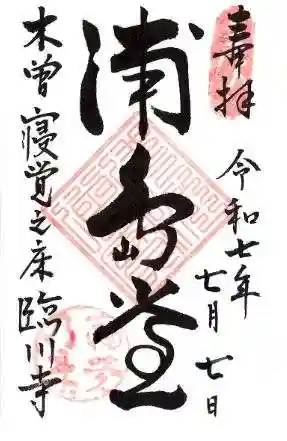 奉拝
令和七年
七月七日
浦島堂
木曽寝覚之床臨川寺